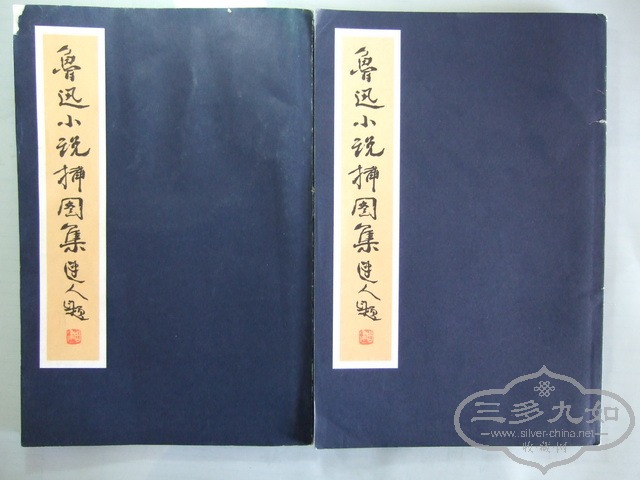 鲁迅小说插图集 建人题
鲁迅小说插图集 建人题
三多九如
www.silver-china.net
收藏网